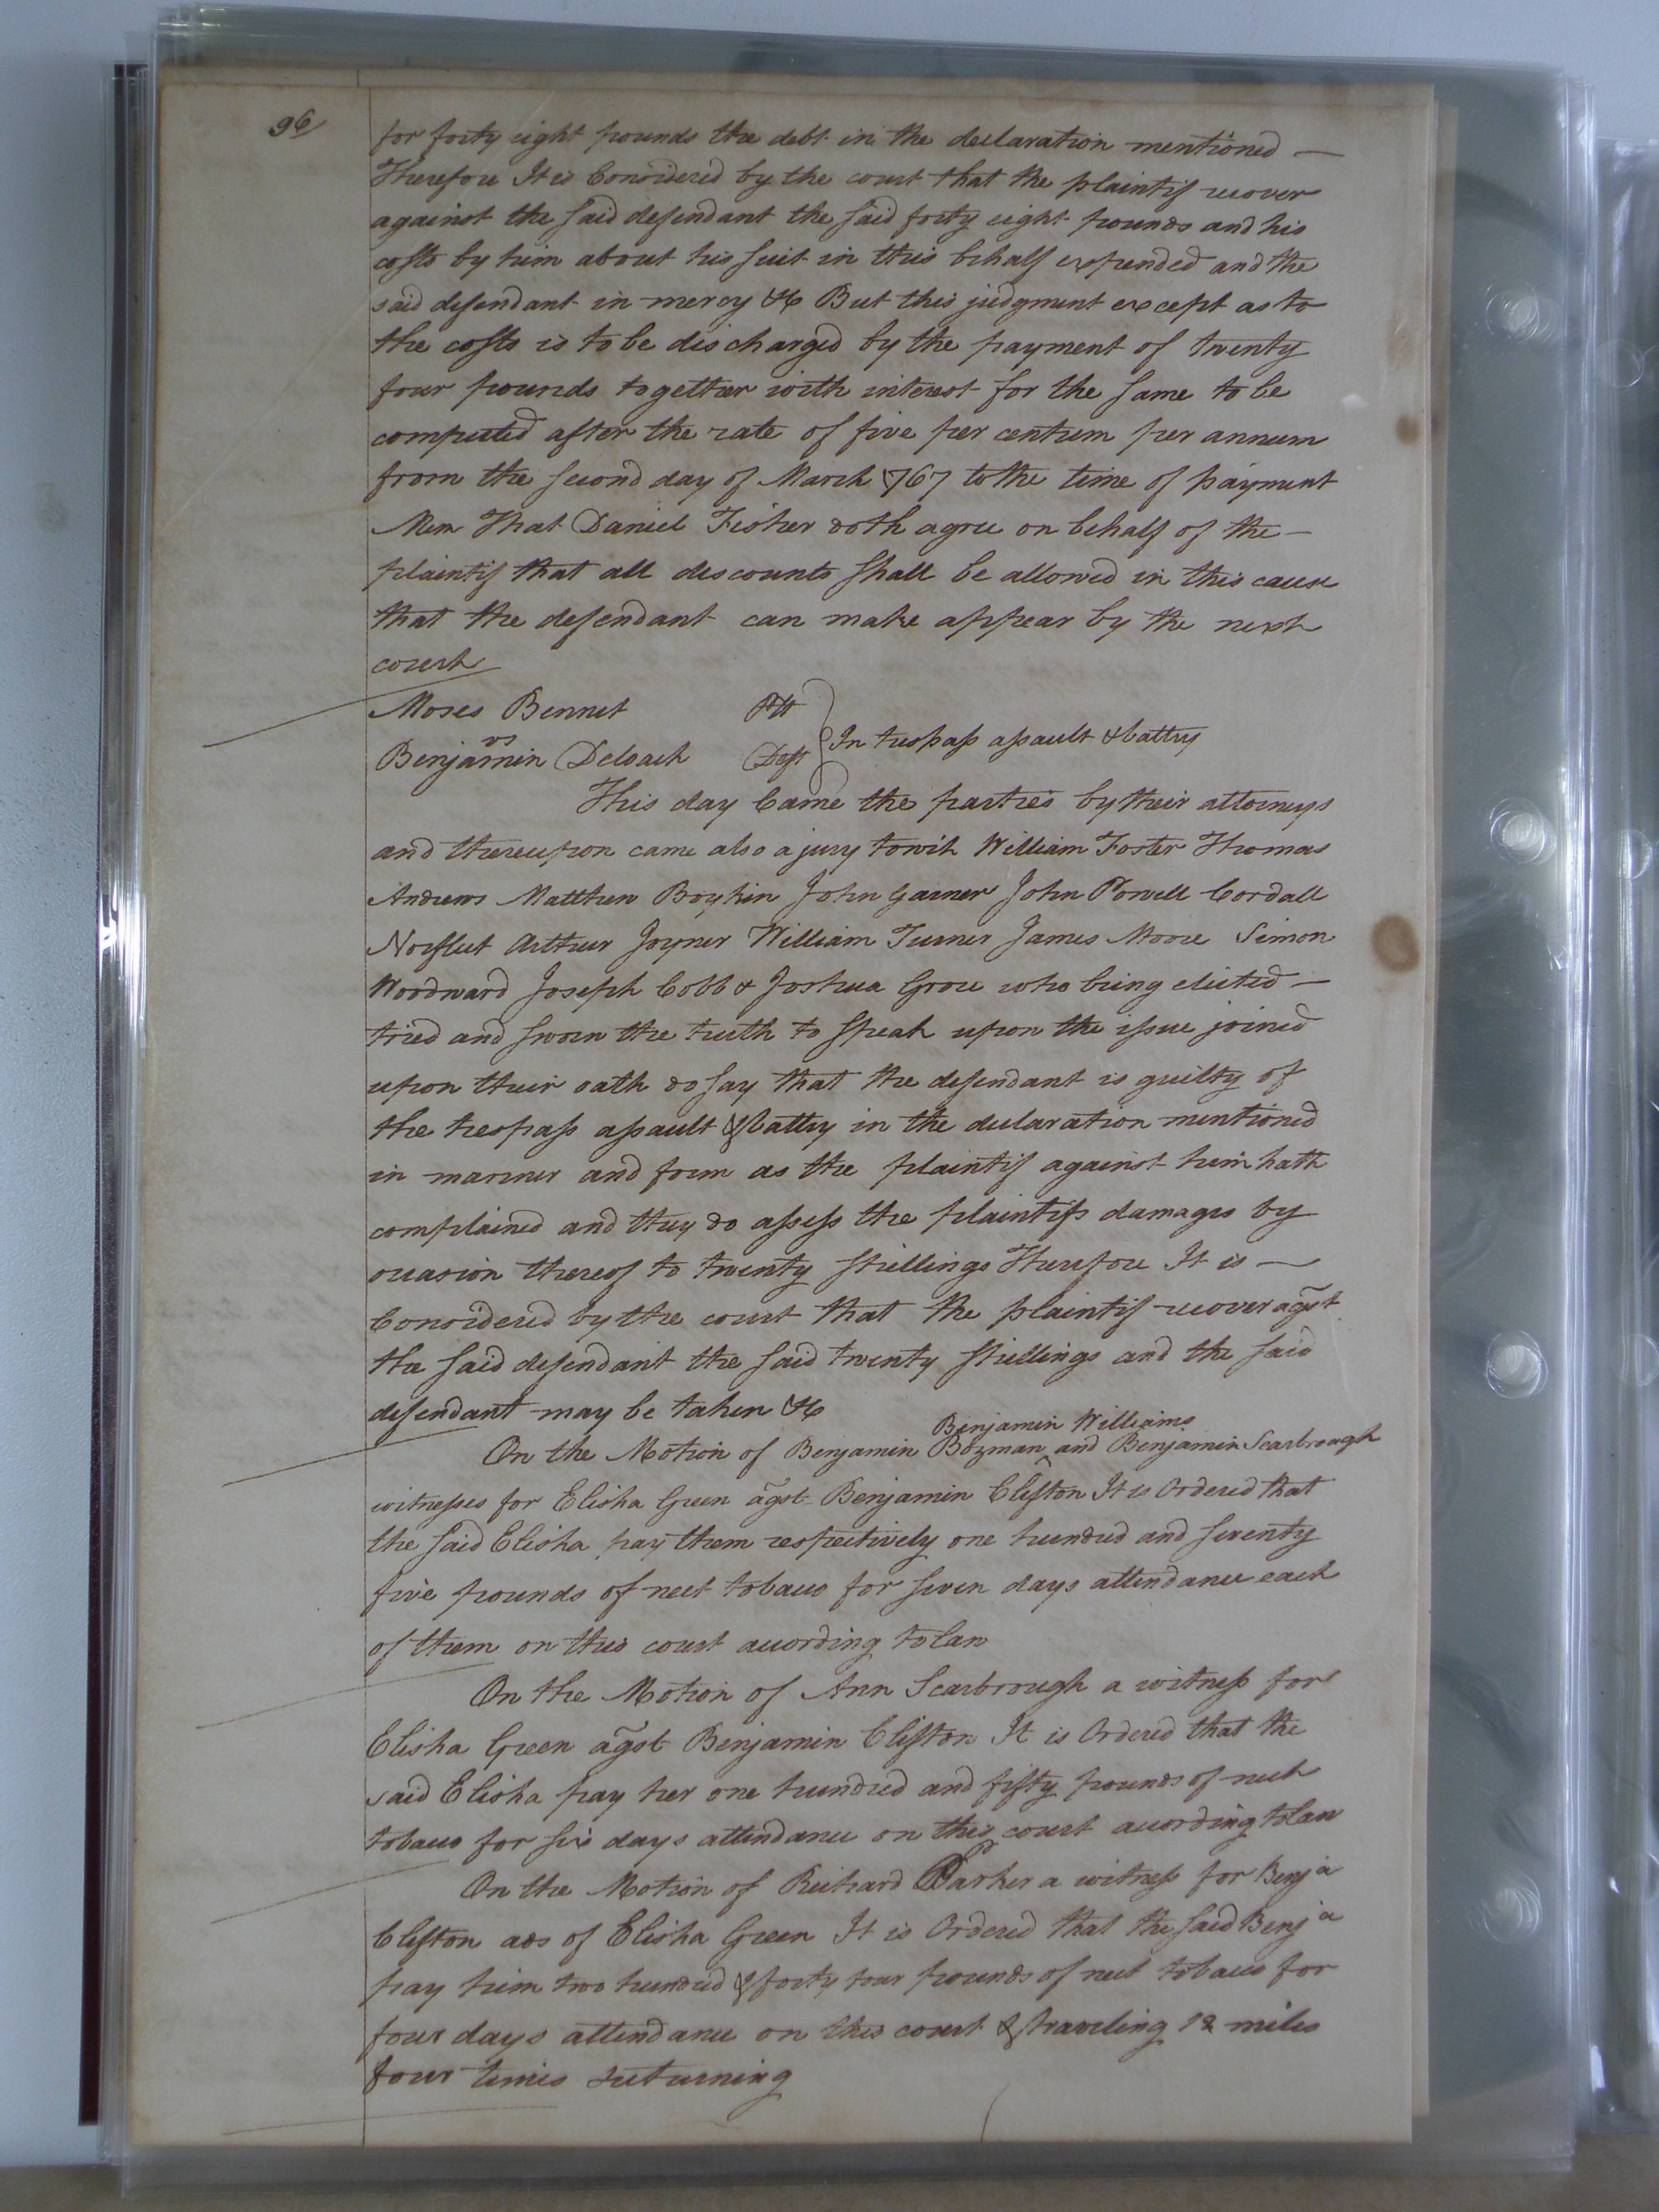 96
for forty eight pounds the debt in the declaration mentioned —
Therefore It is Considered by the court that the plaintif recover
against the said defendant the said forty eight pounds and his
costs by him about his suit in this behalf expended and the
said defendant in mercy &c But this judgment except as to
the costs is to be discharged by the payment of twenty
four pounds together with interest for the same to be
computed after the rate of five per centum per annum
from the second day of March 1767 to the time of payment
Mem That Daniel Fisher doth agree on behalf of the —
plaintif that all discounts shall be allowed in this cause
that the defendant can make appear by the next
court
Moses Bennet Plt
vs
Benjamin Deloach Deft
In trespass assault & battry
This day Came the parties by their attorneys
and thereupon came also a jury towit William Foster Thomas
Andrews Matthew Boykin John Garner John Powell Cordall
Norfleet Arthur Joyner William Turner James Moore Simon
Woodward Joseph Cobb & Joshua Grove who being elected —
tried and sworn the truth to speak upon the issue joined
upon their oath do say that the defendant is guilty of
the trespass assault & battry in the declaration mentioned
in manner and form as the plaintif against him hath
complained and they do assess the plaintifs damages by
occasion thereof to twenty shillings Therefore It is —
Considered by the court that the plaintif recover agst
the said defendant the said twenty shillings and the said
defendant may be taken &c
Benjamin Williams
On the Motion of Benjamin Bozman ^ and Benjamin Scarbrough
witnesses for Elisha Green agst Benjamin Clifton It is Ordered that
the said Elisha pay them respectively one hundred and seventy
five pounds of neet tobacco for seven days attendance each
of them on this court according to law
On the Motion of Ann Scarbrough a witness for
Elisha Green agst Benjamin Clifton It is Ordered that the
said Elisha pay her one hundred and fifty pounds of neet
tobacco for six days attendance on this court according to law
On the Motion of Richard Parker a witness for Benja
Clifton ads of Elisha Green It is Ordered that the said Benja
pay him two hundred & forty four pounds of neet tobacco for
four days attendance on this court & traveling 12 miles
four times returning